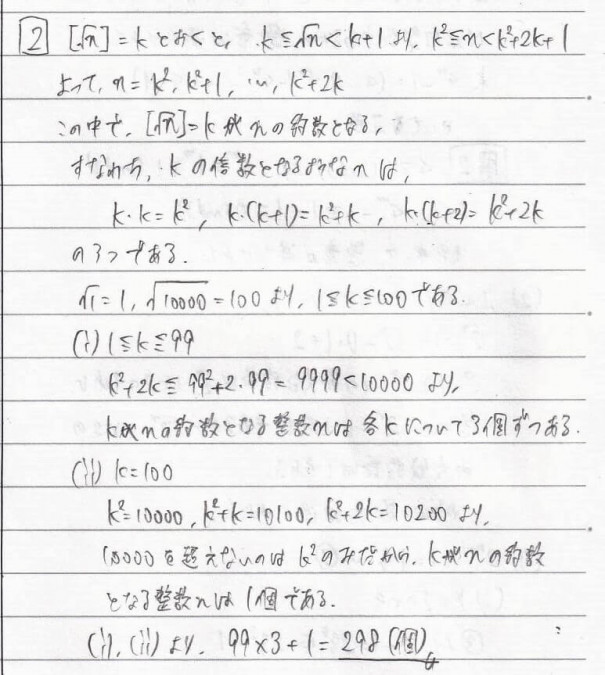 2 [√n]=kとおくと, k≦√n<k+1より, k²≦n<k²+2k+1
よって, n=k², k²+1, …, k²+2k
この中で, [√n]=kがnの約数となる,
すなわち, kの倍数となるようなnは,
k・k=k², k・(k+1)=k²+k, k・(k+2)=k²+2k
の3つである.
√1=1, √10000=100より, 1≦k≦100である.
(i) 1≦k≦99
k²+2k≦99²+2・99=9999<10000より,
kがnの約数となる整数nは各kについて3個ずつある.
(ii) k=100
k²=10000, k²+k=10100, k²+2k=10200より,
10000を超えないのはk²のみだから, kがnの約数
となる整数nは1個である.
(i), (ii)より, 99×3+1=298(個)